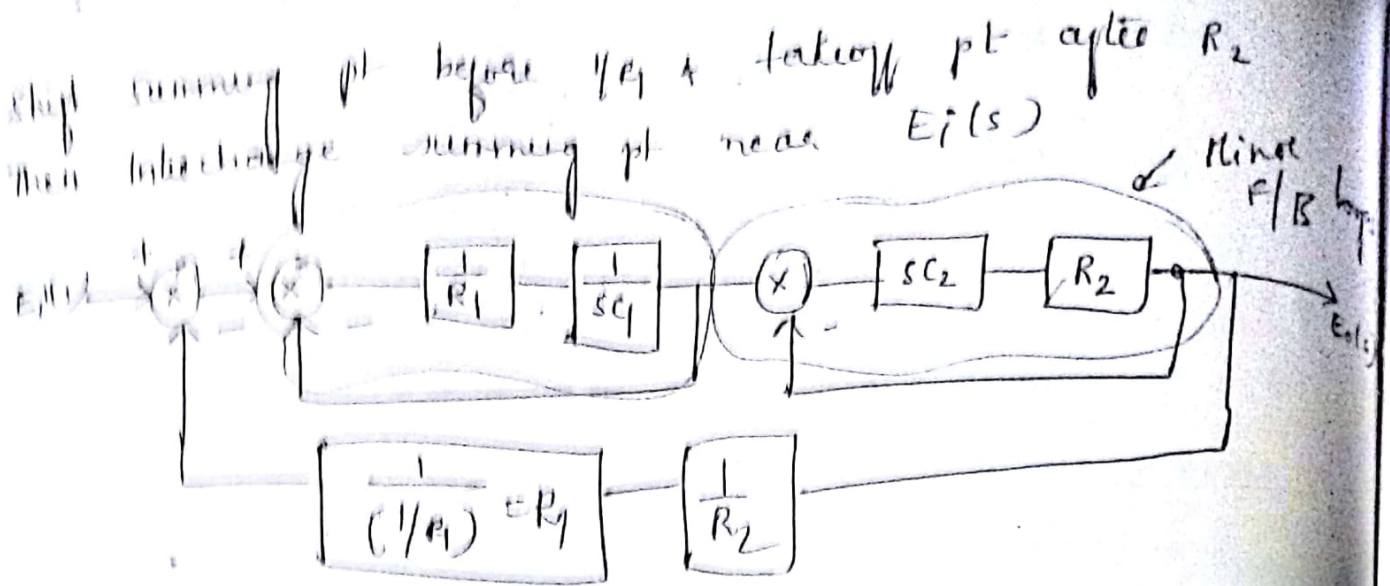 Shift summing pt before 1/R1 & takeoff pt after R2
Then Interchange summing pt near Ei(s)
Minor
F/B loop
+
+
Ei(s)
X
X
1/R1
1/sC1
X
sC2
R2
Eo(s)
-
-
-
1/(1/R1) = R1
1/R2